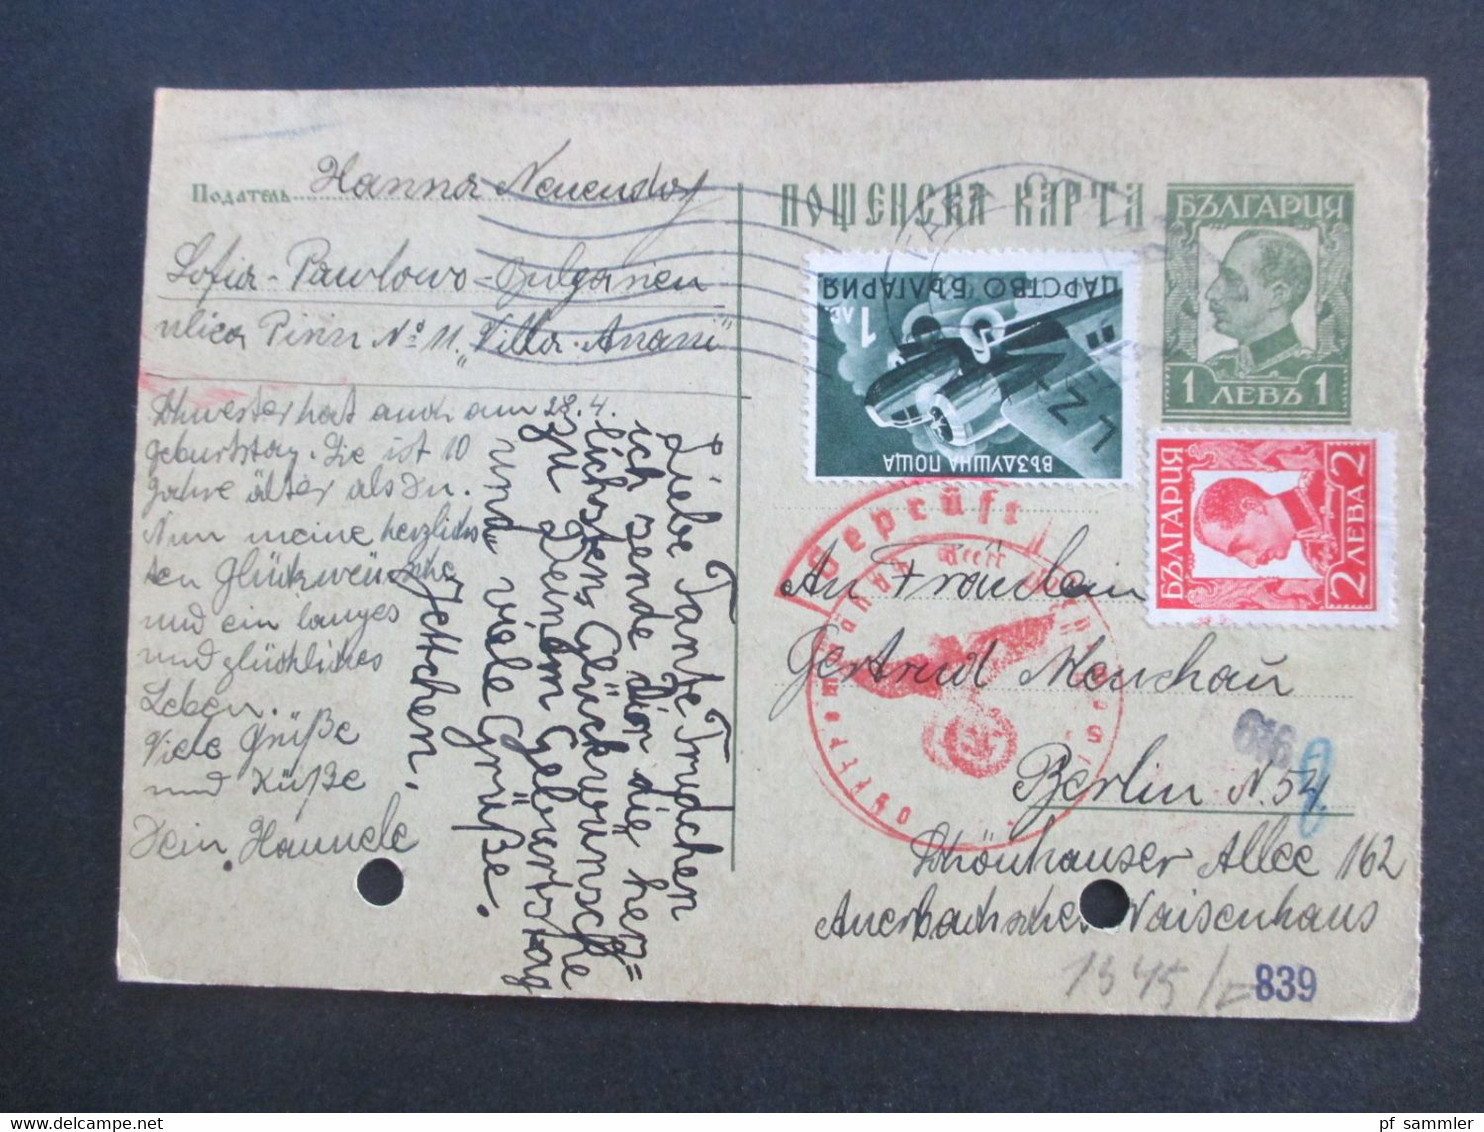 Податель Hanna Neuendorf
Sofia - Pawlowo - Bulgarien
ulica Pirin № 11 „Villa Anani"
Schwester hat auch am 28.4.
Geburtstag. Sie ist 10
Jahre älter als Du.
Nun meine herzlichs
ten Glückwünsche
und ein langes
und glückliches
Leben.
Viele Grüße
und Küße
Dein Hannele
Liebe Tante Trudchen
ich sende dir die herz=
lichsten Glückwünsche
zu Deinem Geburtstag
und viele Grüße.
Jettchen.
ПОЩЕНСКА КАРТА
БЪЛГАРИЯ
1 ЛЕВЪ 1
ЦАРСТВО БЪЛГАРИЯ
1 ЛЕВ
LZ
ВЪЗДУШНА ПОЩА
БЪЛГАРИЯ
2 ЛЕВА 2
Geprüft
An Fräulein
Gertrud Menchau
Berlin N.54
Schönhauser Allee 162
Auerbachsches Waisenhaus
1345/
839
pf sammler
DELCAMPE.NET